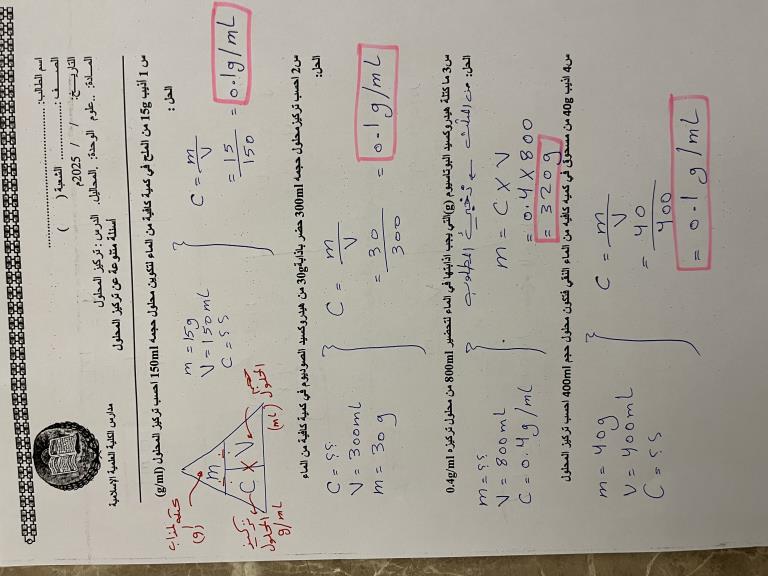 مدارس الكلية العلمية الإسلامية
اسم الطالب: ..............................
الصف: .............. الشعبة ( )
التاريخ: / / 2025م
المادة: علوم الوحدة: المحاليل. الدرس: تركيز المحلول
أسئلة متنوعة عن تركيز المحلول
س1 أذيب 15g من الملح في كمية كافية من الماء لتكوين محلول حجمه 150ml احسب تركيز المحلول (g/ml)
الحل:
كتلة المذاب
(g)
m
C X V
تركيز المحلول
g/mL
حجم المحلول
(mL)
m = 15g
V = 150mL
C = ؟؟
C = m/V
= 15/150 = 0.1g/mL
س2 احسب تركيز محلول حجمه 300ml حضر بإذابة 30g من هيدروكسيد الصوديوم في كمية كافية من الماء
الحل:
C = ؟؟
V = 300mL
m = 30g
C = m/V
= 30/300 = 0.1g/mL
س3 ما كتلة هيدروكسيد البوتاسيوم (g) التي يجب اذابتها في الماء لتحضير 800ml من محلول تركيزه 0.4g/ml
الحل: من المثلث
m = ؟؟
V = 800mL
C = 0.4g/mL
m = C X V
= 0.4 X 800
= 320g
س4 أذيب 40g من مسحوق في كمية كافية من الماء النقي فتكون محلول حجم 400ml احسب تركيز المحلول
m = 40g
V = 400mL
C = ؟؟
C = m/V
= 40/400
= 0.1g/mL